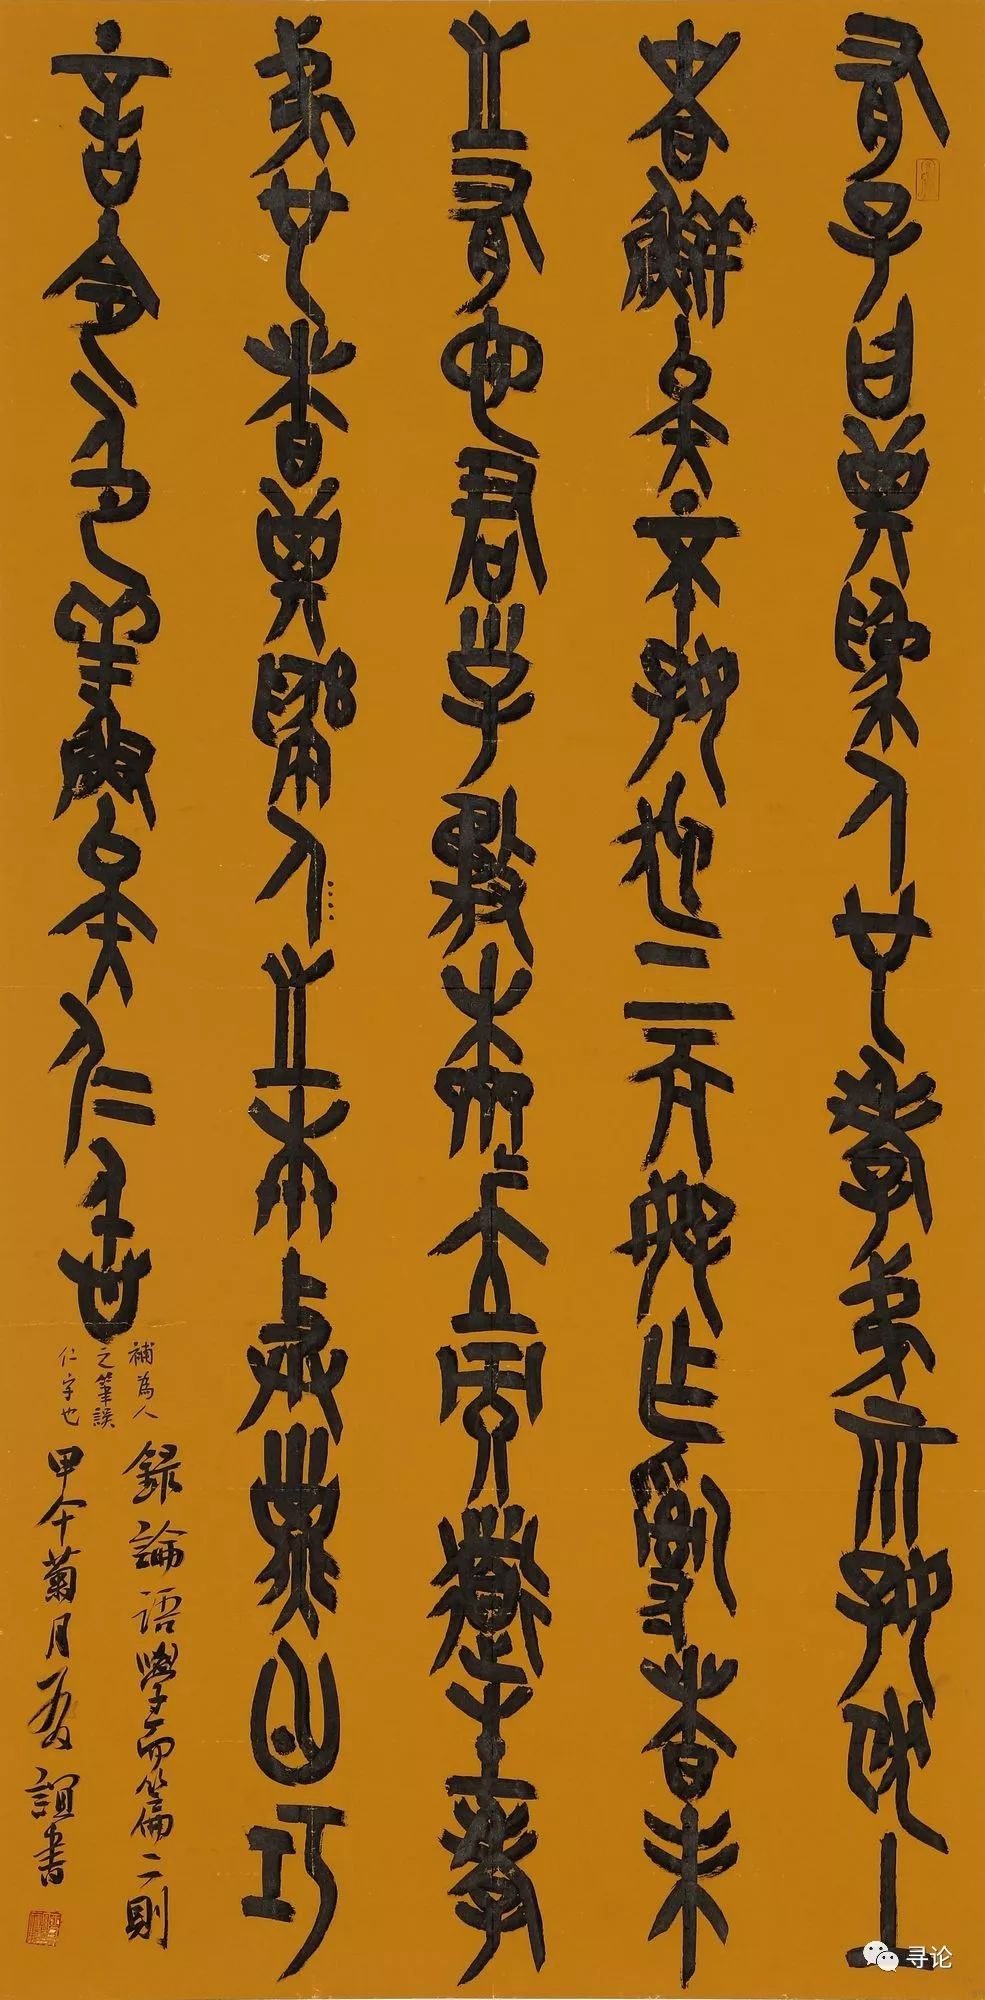 有子曰其為人也孝弟而好犯上
者鮮矣不好犯上而好作亂者未
之有也君子務本本立而道生孝
弟也者其為人之本與子曰巧
言令色鮮矣仁仁
補為人
之筆誤
仁字也
錄論語學而篇二則
甲午菊月誼書
寻论